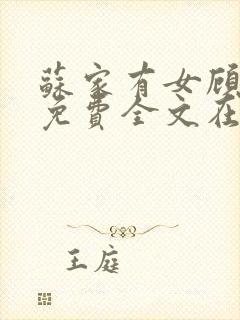 蘇家有女顾
免費全文在
王庭